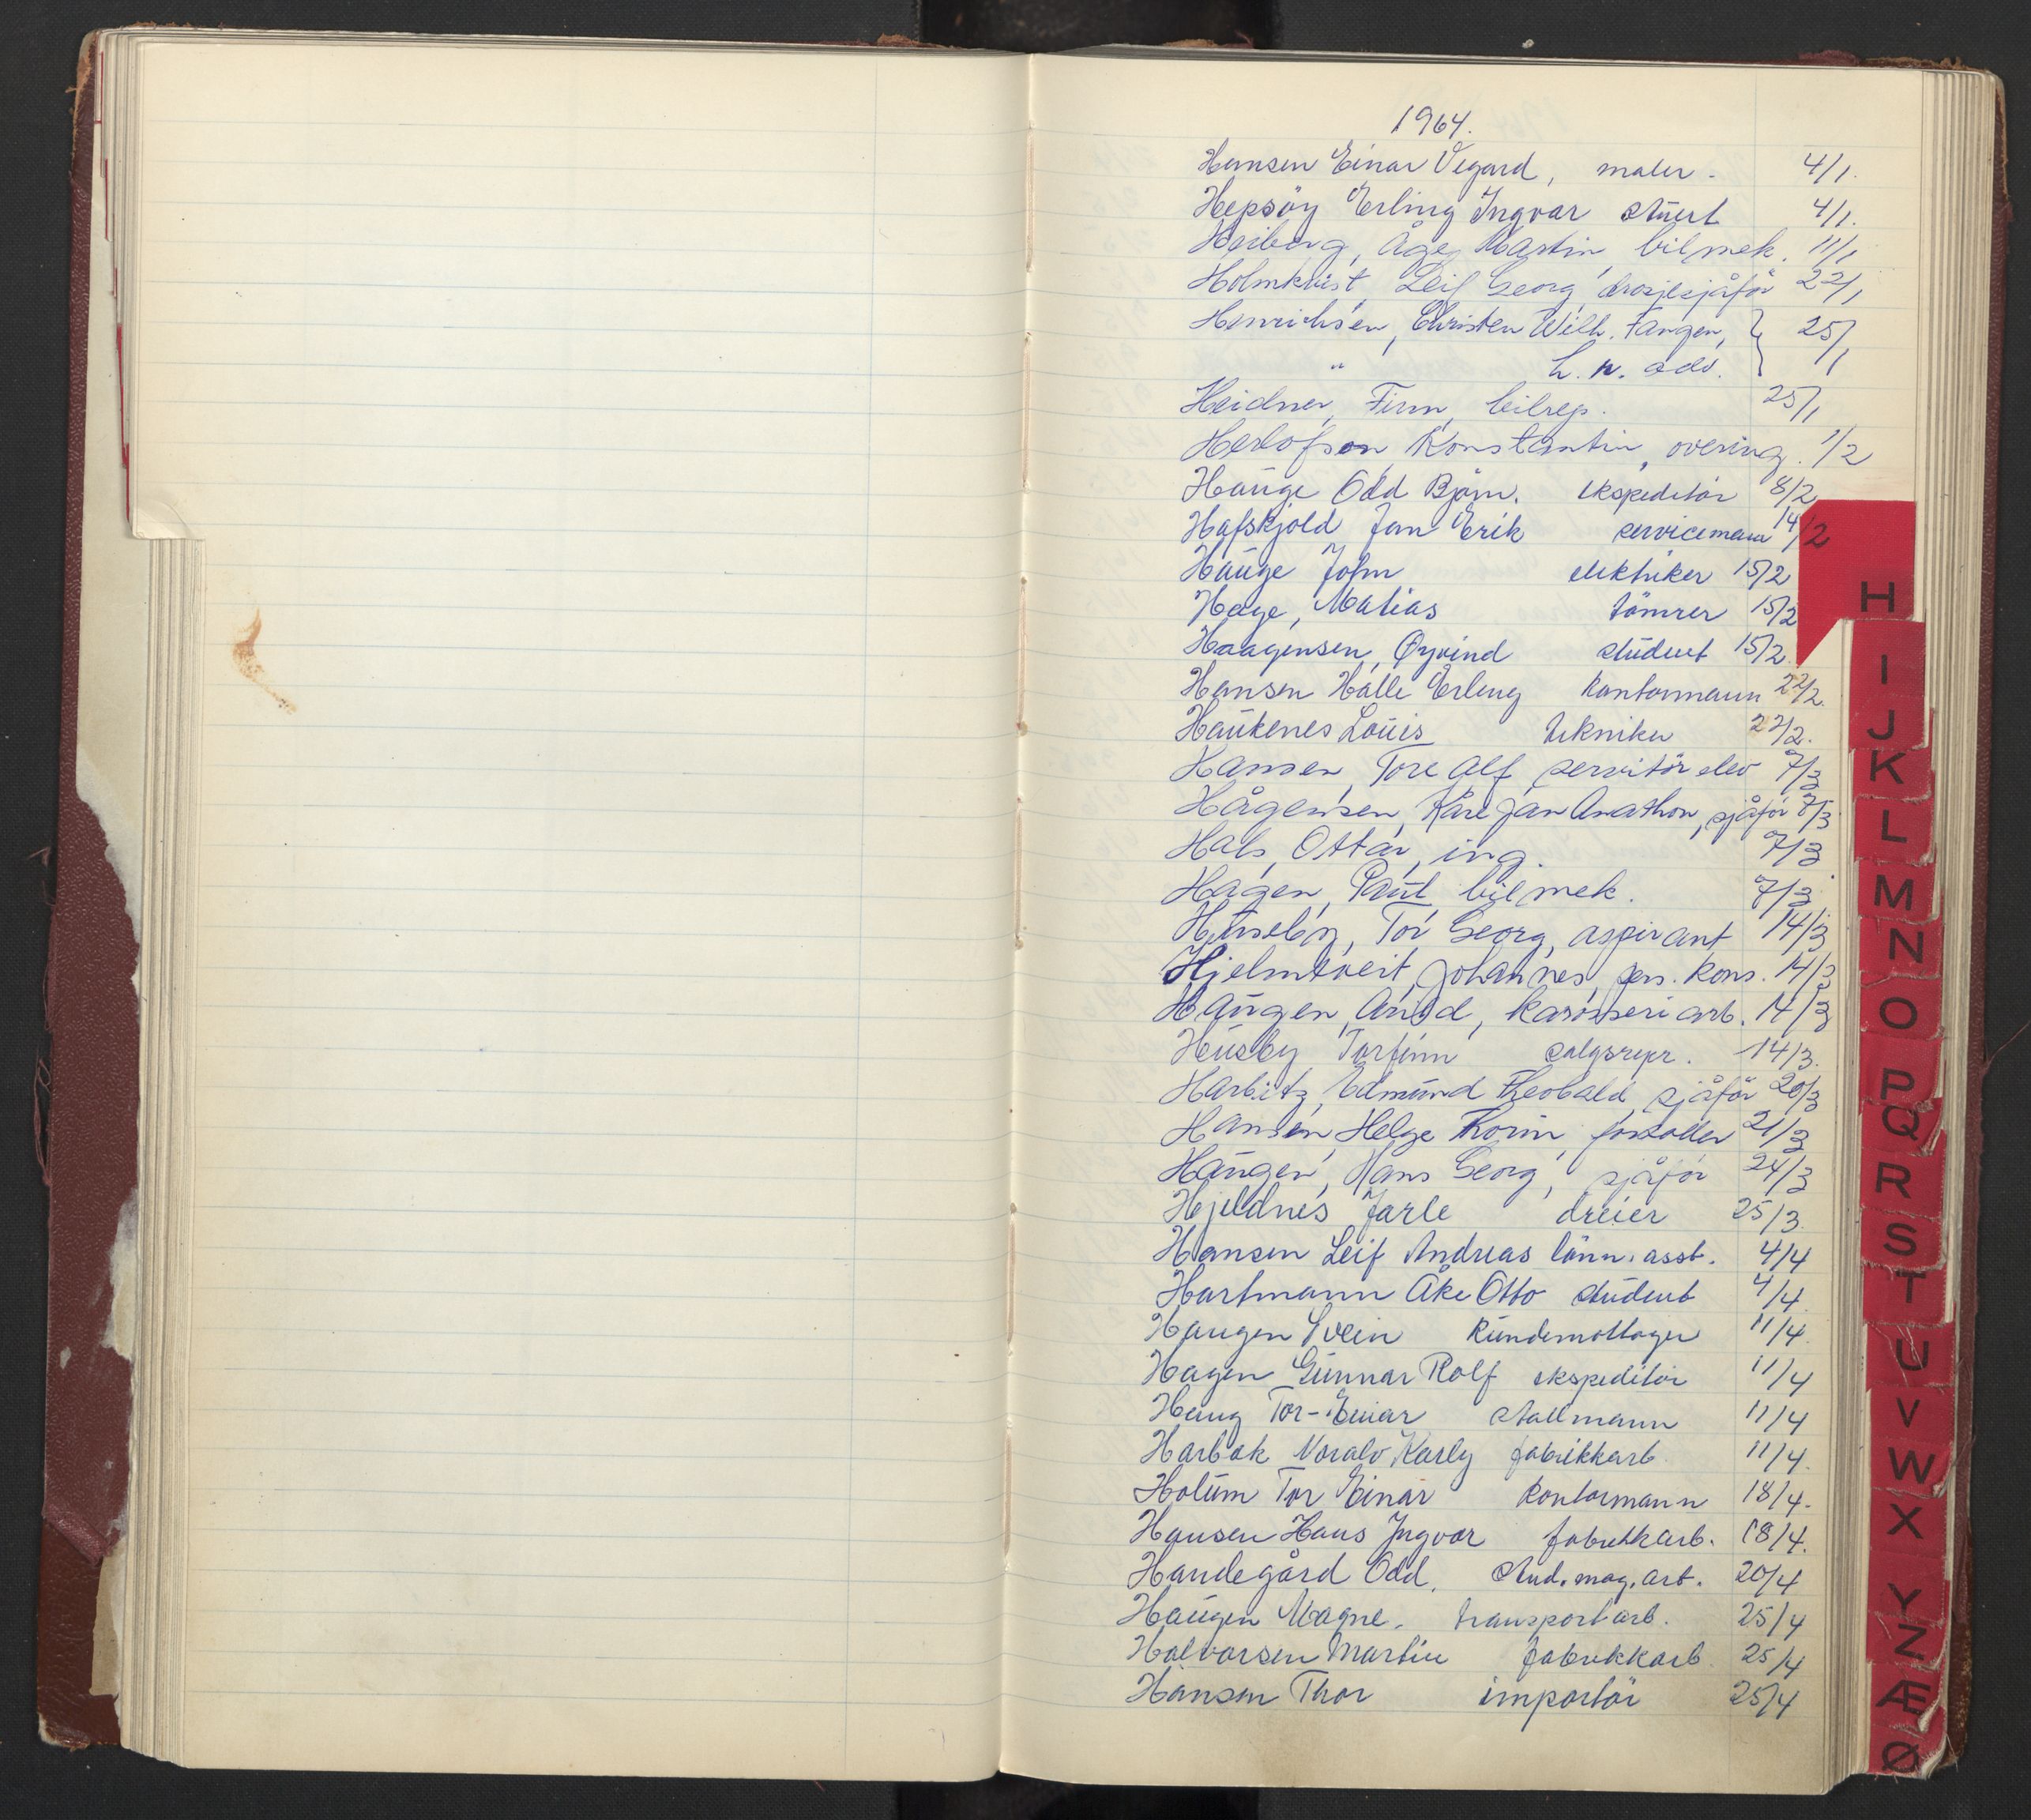 1964.
Hansen Einar Vegard, maler. 4/1.
Hepsöy Erling Ingvar stuert 4/1.
Heiberg, Åge Martin, bilmek. 11/1
Holmkvist, Leif Georg, drosjesjåför 22/1
Henrichsen, Christen Wilh. Fangen, } 25/1
" h. r. adv.
Heidner, Finn, bilrep. 25/1
Herlofson Konstantin, overing. 1/2
Hauge Odd Bjørn. ekspeditör 8/2
Hafskjold Jan Erik servicemann 14/2
Hauge John elektriker 15/2
Hage, Matias tömrer 15/2
Haagensen, Øyvind student 15/2.
Hansen Halle Erling kontormann 22/2.
Haukenes Louis tekniker 22/2.
Hansen, Tore Alf, servitör elev 7/3
Hågensen, Kåre Jan Anathon, sjåför 7/3
Hals, Ottar, ing. 7/3
Hagen, Paul, bilmek. 7/3
Huseby, Tor Georg, aspirant 14/3
Hjelmtveit, Johannes, pers. kons. 14/3
Haugen, Arild, karosseriarb. 14/3
Husby Torfinn salgsrepr. 14/3.
Harbitz, Edmund Theobald, sjåför 20/3
Hansen, Helge Thorin, forskaller 21/3
Haugen, Hans Georg, sjåför 24/3
Hjeldnes Jarle dreier 25/3.
Hansen Leif Andreas lönn. asst. 4/4
Hartmann Åke Otto student 4/4.
Haugen Svein Kundemottager 11/4.
Hagen Gunnar Rolf ekspeditör 11/4
Haug Tor-Einar stallmann 11/4
Harbak Noralv Karly fabrikkarb. 11/4.
Holum Tor Einar kontormann 18/4.
Hansen Hans Ingvar fabrikkarb. 18/4.
Handegård Odd. stud. mag. art. 20/4
Haugen Magne. transportarb. 25/4
Halvorsen Martin fabrikkarb. 25/4
Hansen Thor importör 25/4
H
I
J
K
L
M
N
O
P
Q
R
S
T
U
V
W
X
Y
Z
Æ
Ø